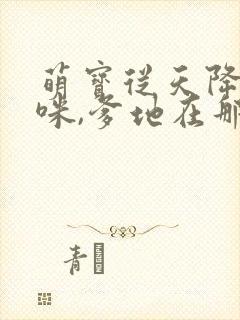 萌宝从天降
咪,爹地在哪
青